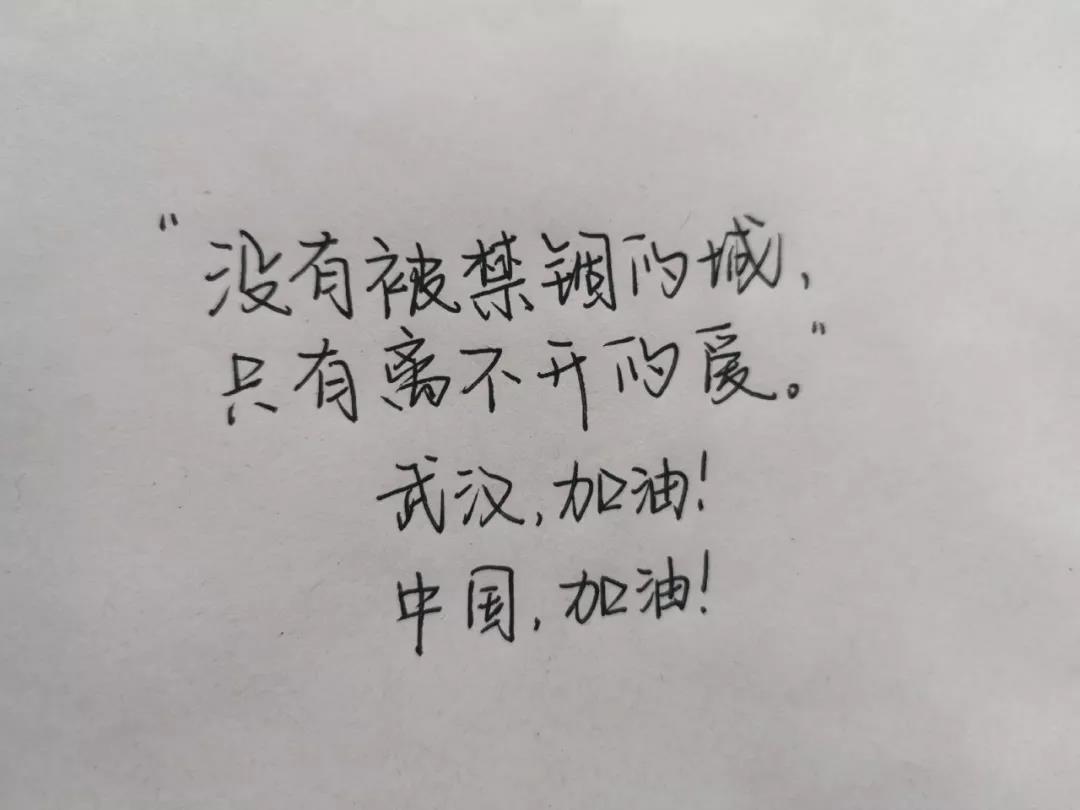 “没有被禁锢的城,
只有离不开的爱。”
武汉,加油!
中国,加油!